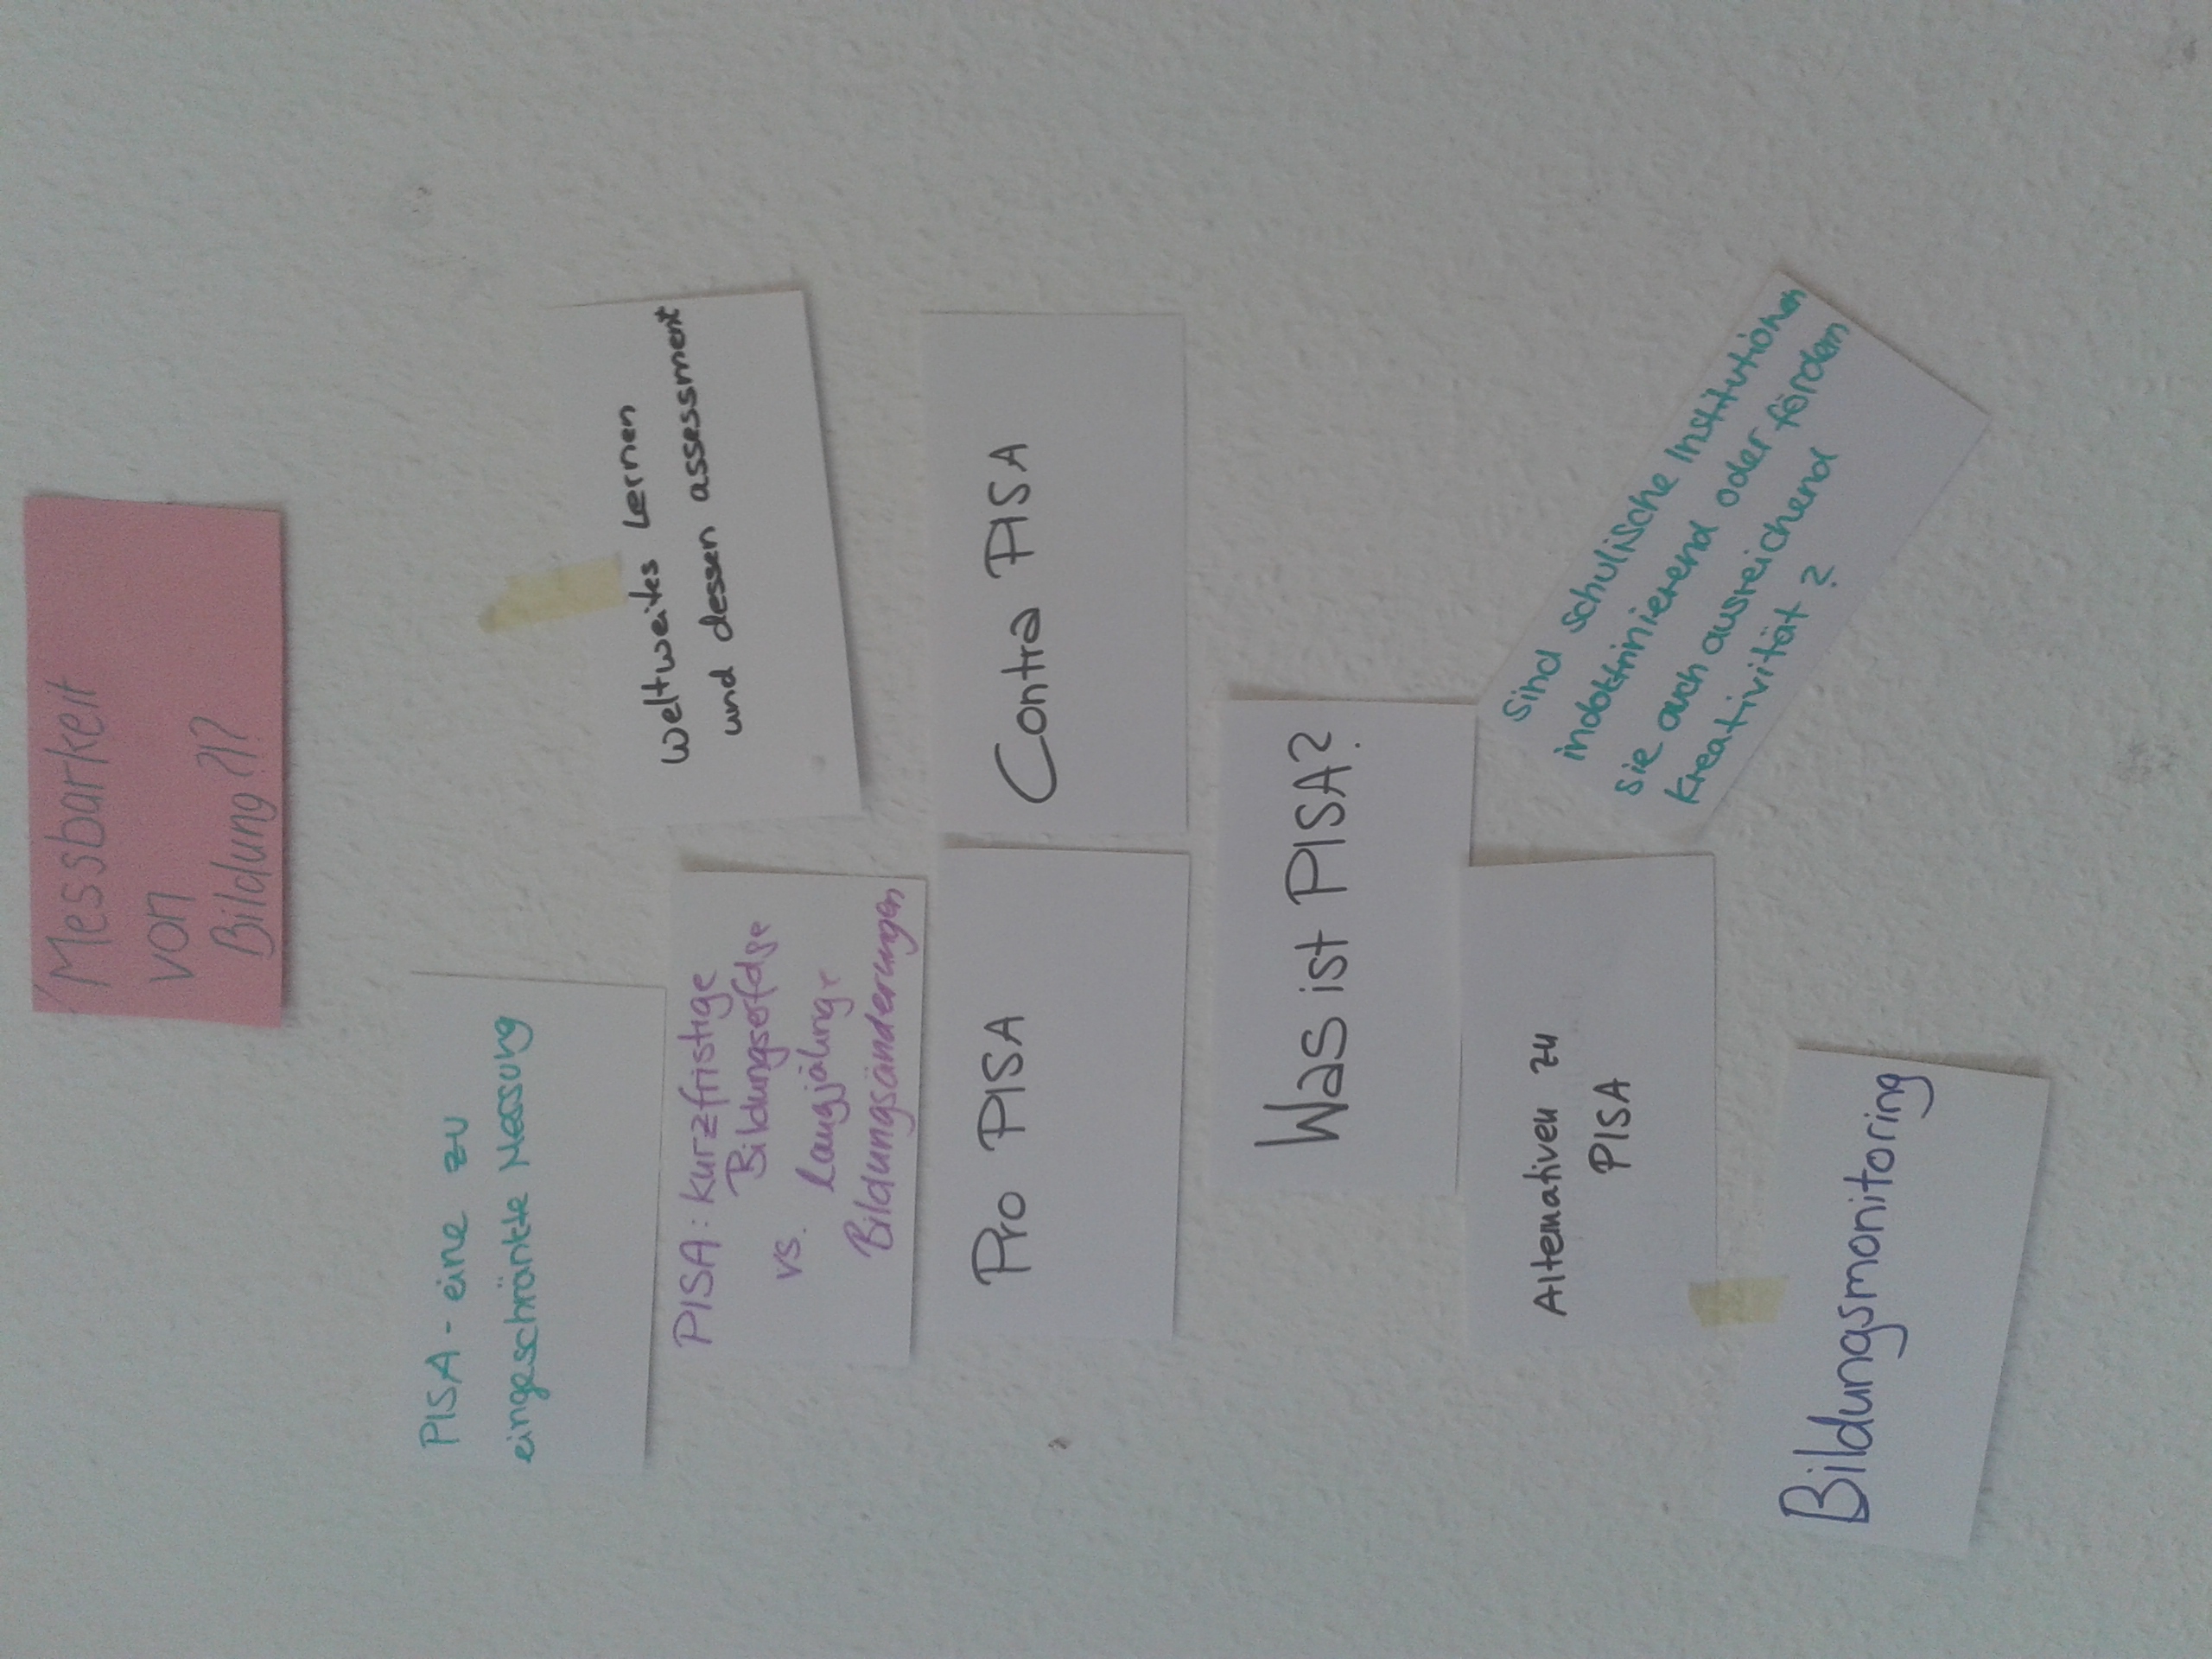 Messbarkeit
von
Bildung?!?
PISA - eine zu
eingeschränkte Messung
Weltweites Lernen
und dessen assessment
PISA: kurzfristige
Bildungserfolge
vs.
langjährige
Bildungsänderungen
Pro PISA
Contra PISA
Was ist PISA?
Alternativen zu
PISA
Sind schulische Institutionen
indoktrinierend oder fördern
sie auch ausreichend
Kreativität?
Bildungsmonitoring